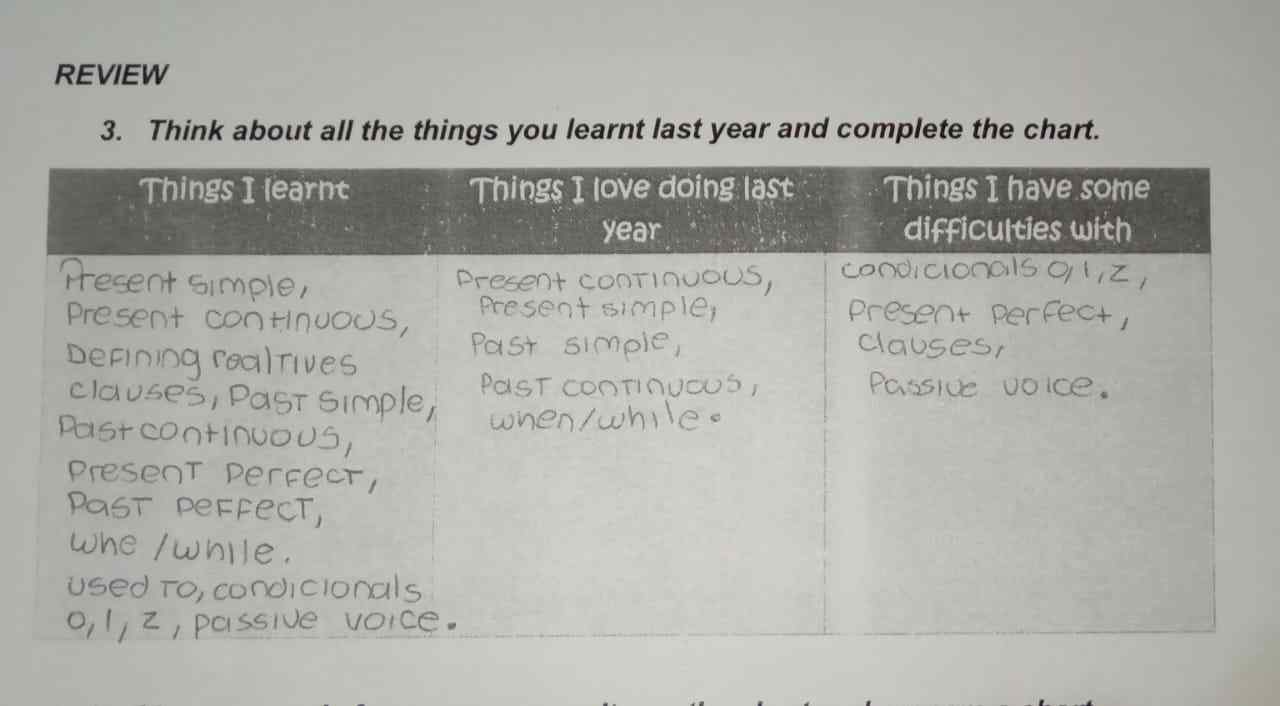 REVIEW
3. Think about all the things you learnt last year and complete the chart.
Things I learnt
Present simple,
Present continuous,
Defining realtives
clauses, Past simple,
Past continuous,
Present Perfect,
Past Peffect,
Whe /while.
used to, condicionals
0, 1, 2, passive voice.
Things I love doing last
year
Present continuous,
Present simple,
Past simple,
Past continuous,
when/while.
Things I have some
difficulties with
condicionals 0, 1, 2,
Present Perfect,
clauses,
Passive voice.